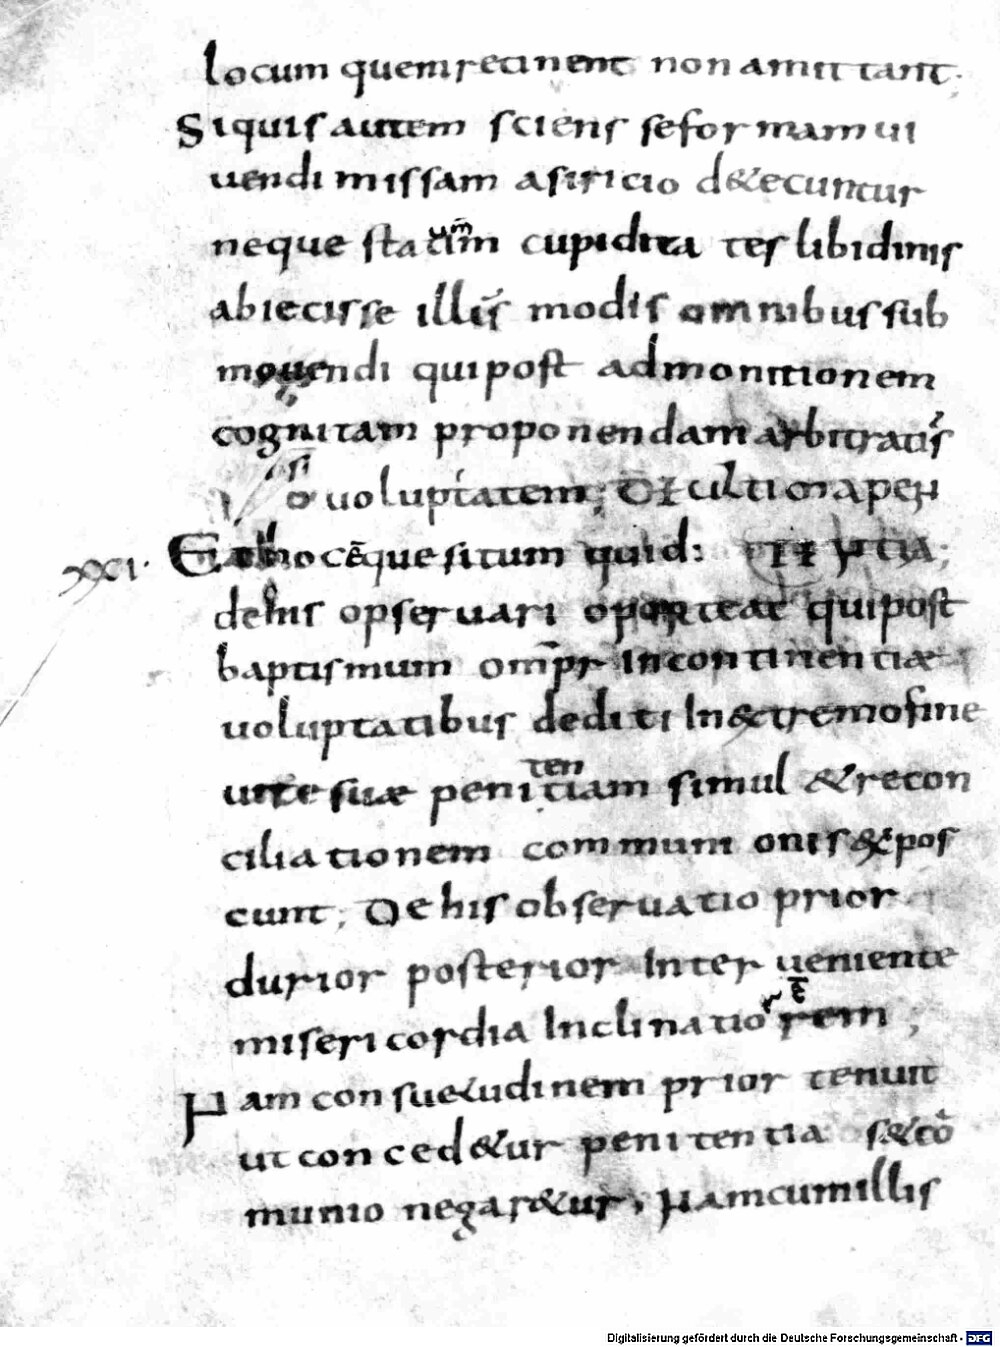 locum quem retinent non amittant;
Siquis autem sciens se formam ui
uendi missam a siricio d&ecuntur
neque statim cupiditates libidinis
abiecisse illis modis omnibus sub
mouendi qui post admonitionem
cognitam proponendam arbitratis
o uoluptatem; DE ultima peN
XXI. Et hoc cēquesitum quid: ITENTIA;
dehis opseruari oporteat qui post
baptismum omīpr incontinentiae
uoluptatibus dediti In&xtremo fine
uite suae penitentiam simul & recon
ciliationem communionis &pos
cunt, De his obseruatio prior
durior posterior Inter ueniente
misericordia Inclinatior ē
Nam consuetudinem prior tenuit
ut conced&ur penitentia s& cō
munio negar&ur, Nam cum illis
Digitalisierung gefördert durch die Deutsche Forschungsgemeinschaft - DFG